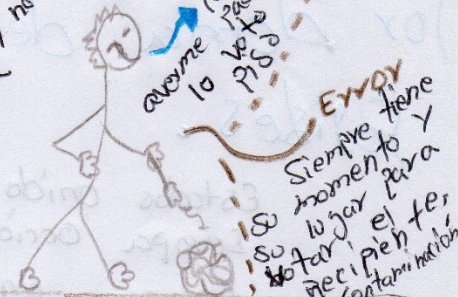 no
averme
lo voto
piso
Error
Siempre tiene
su momento y
su lugar para
votar, el
recipiente,
contaminación